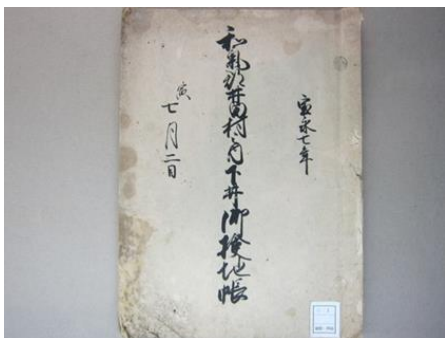 寳永七年
和氣郡井田村内下井御検地帳
寅
七月二日